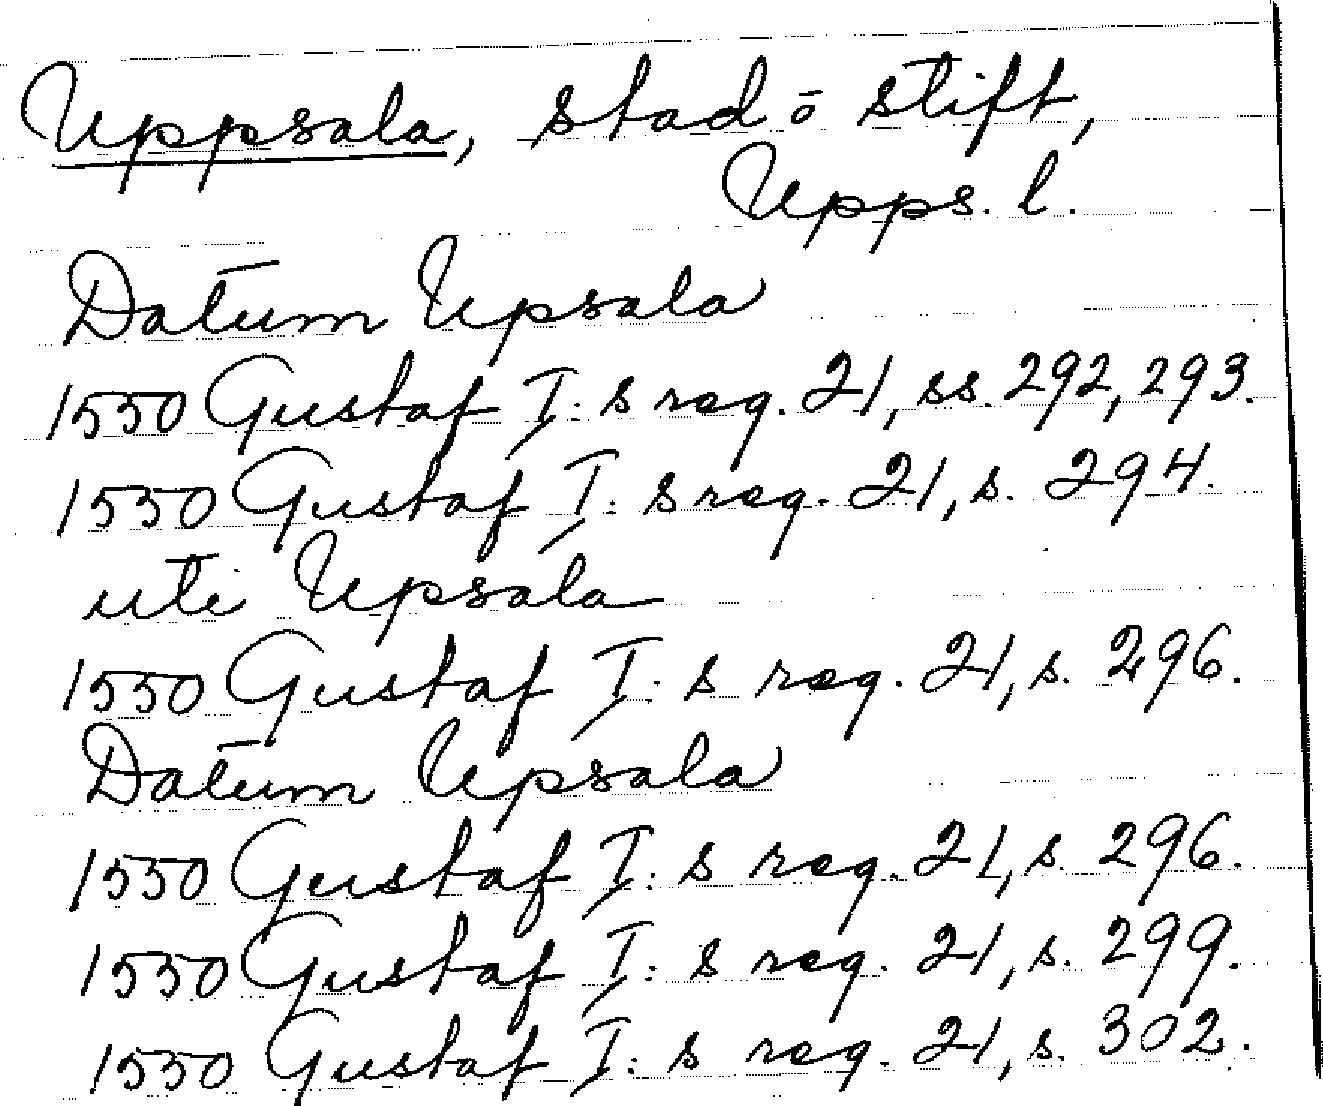 Uppsala, stad o stift,
Upps. l.
Datum Upsala
1550 Gustaf I:s reg. 21, ss. 292, 293.
1550 Gustaf I:s reg. 21, s. 294.
uti Upsala
1550 Gustaf I:s reg. 21, s. 296.
Datum Upsala
1550 Gustaf I:s reg. 21, s. 296.
1550 Gustaf I:s reg. 21, s. 299.
1550 Gustaf I:s reg. 21, s. 302.